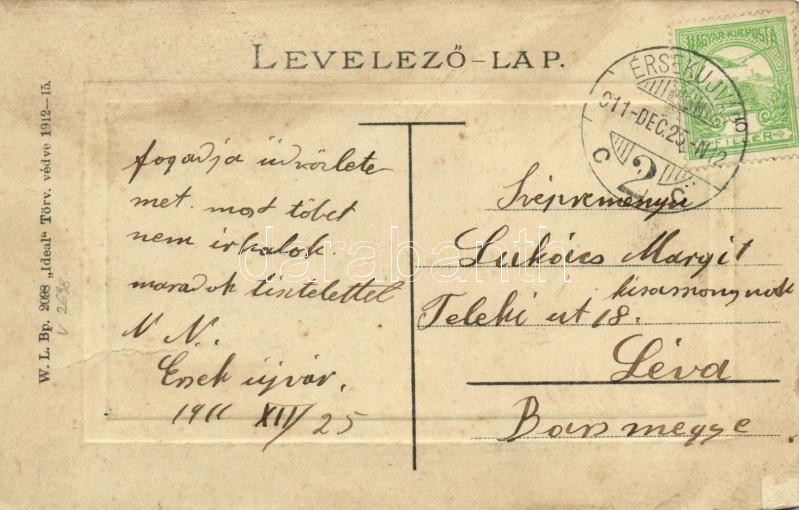 LEVELEZŐ-LAP.
MAGYAR·KIR·POSTA
5
FILLÉR
ÉRSEKUJVÁR
911-DEC.25.-N12
C 2 C
W. L. Bp. 2098 „Ideal" Törv. védve 1912—15.
V 2698
fogadja üdvözlete
met. most töbet
nem irhatok.
maradok tisztelettel
N N.
Érsek újvár.
1911 XII/25
Szépreményü
Lukács Margit
kisasszonynak
Teleki ut 18.
Léva
Bars megye
darabanth